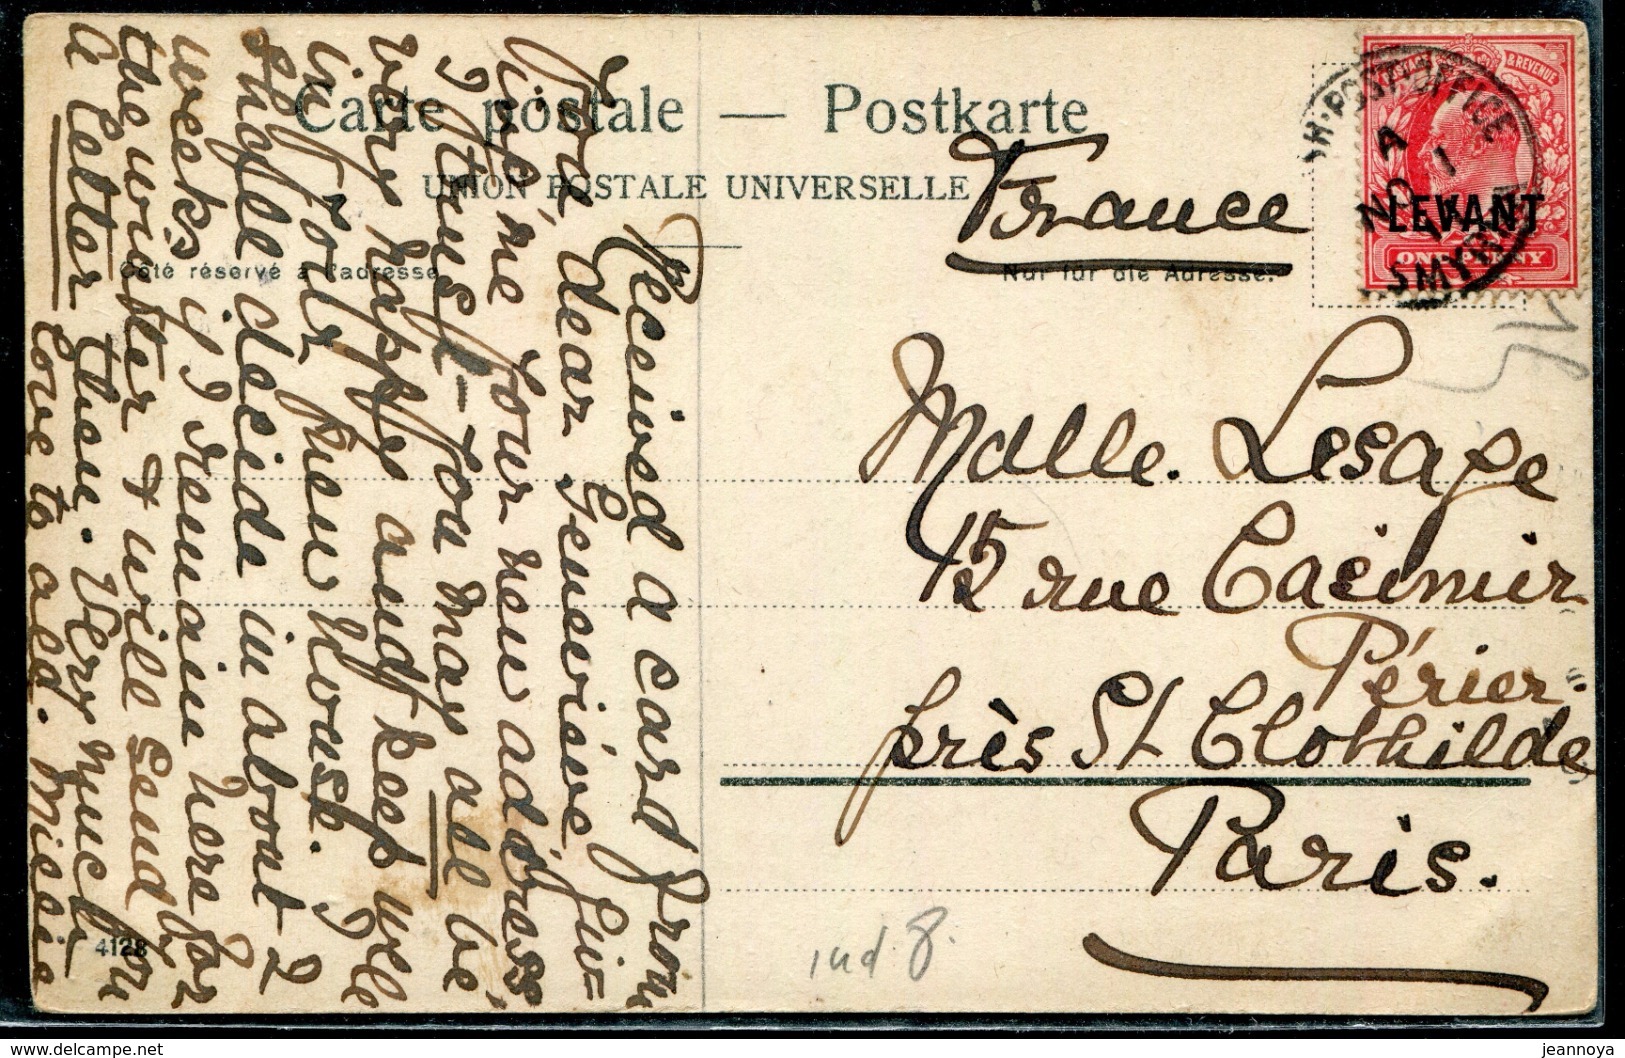 Carte postale — Postkarte
UNION POSTALE UNIVERSELLE
Côté réservé à l'adresse
Nur für die Adresse.
POSTAGE & REVENUE
LEVANT
ONE PENNY
SH·POST OFFICE
A
NO 1
SMYRNA
France
Mdlle. Lesage
15 rue Casimir
Périer
près St Clothilde
Paris.
Received a card from
you dear Geneviève giv-
ing me your new address
I trust you may all be
very happy and keep well
in your new house. I
shall decide in about 2
weeks if I remain here for
the winter & will send you
a letter then. Very much
love to all. Missie
4128
ind 8.
jeannoya
www.delcampe.net